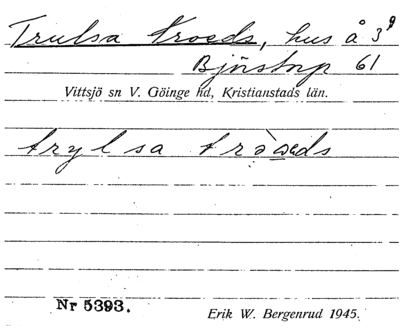 Trulsa Troeds, hus å 3⁹
Bjöstorp 61
Vittsjö sn V. Göinge hd, Kristianstads län.
trylsa
Nr 5393.
Erik W. Bergenrud 1945.